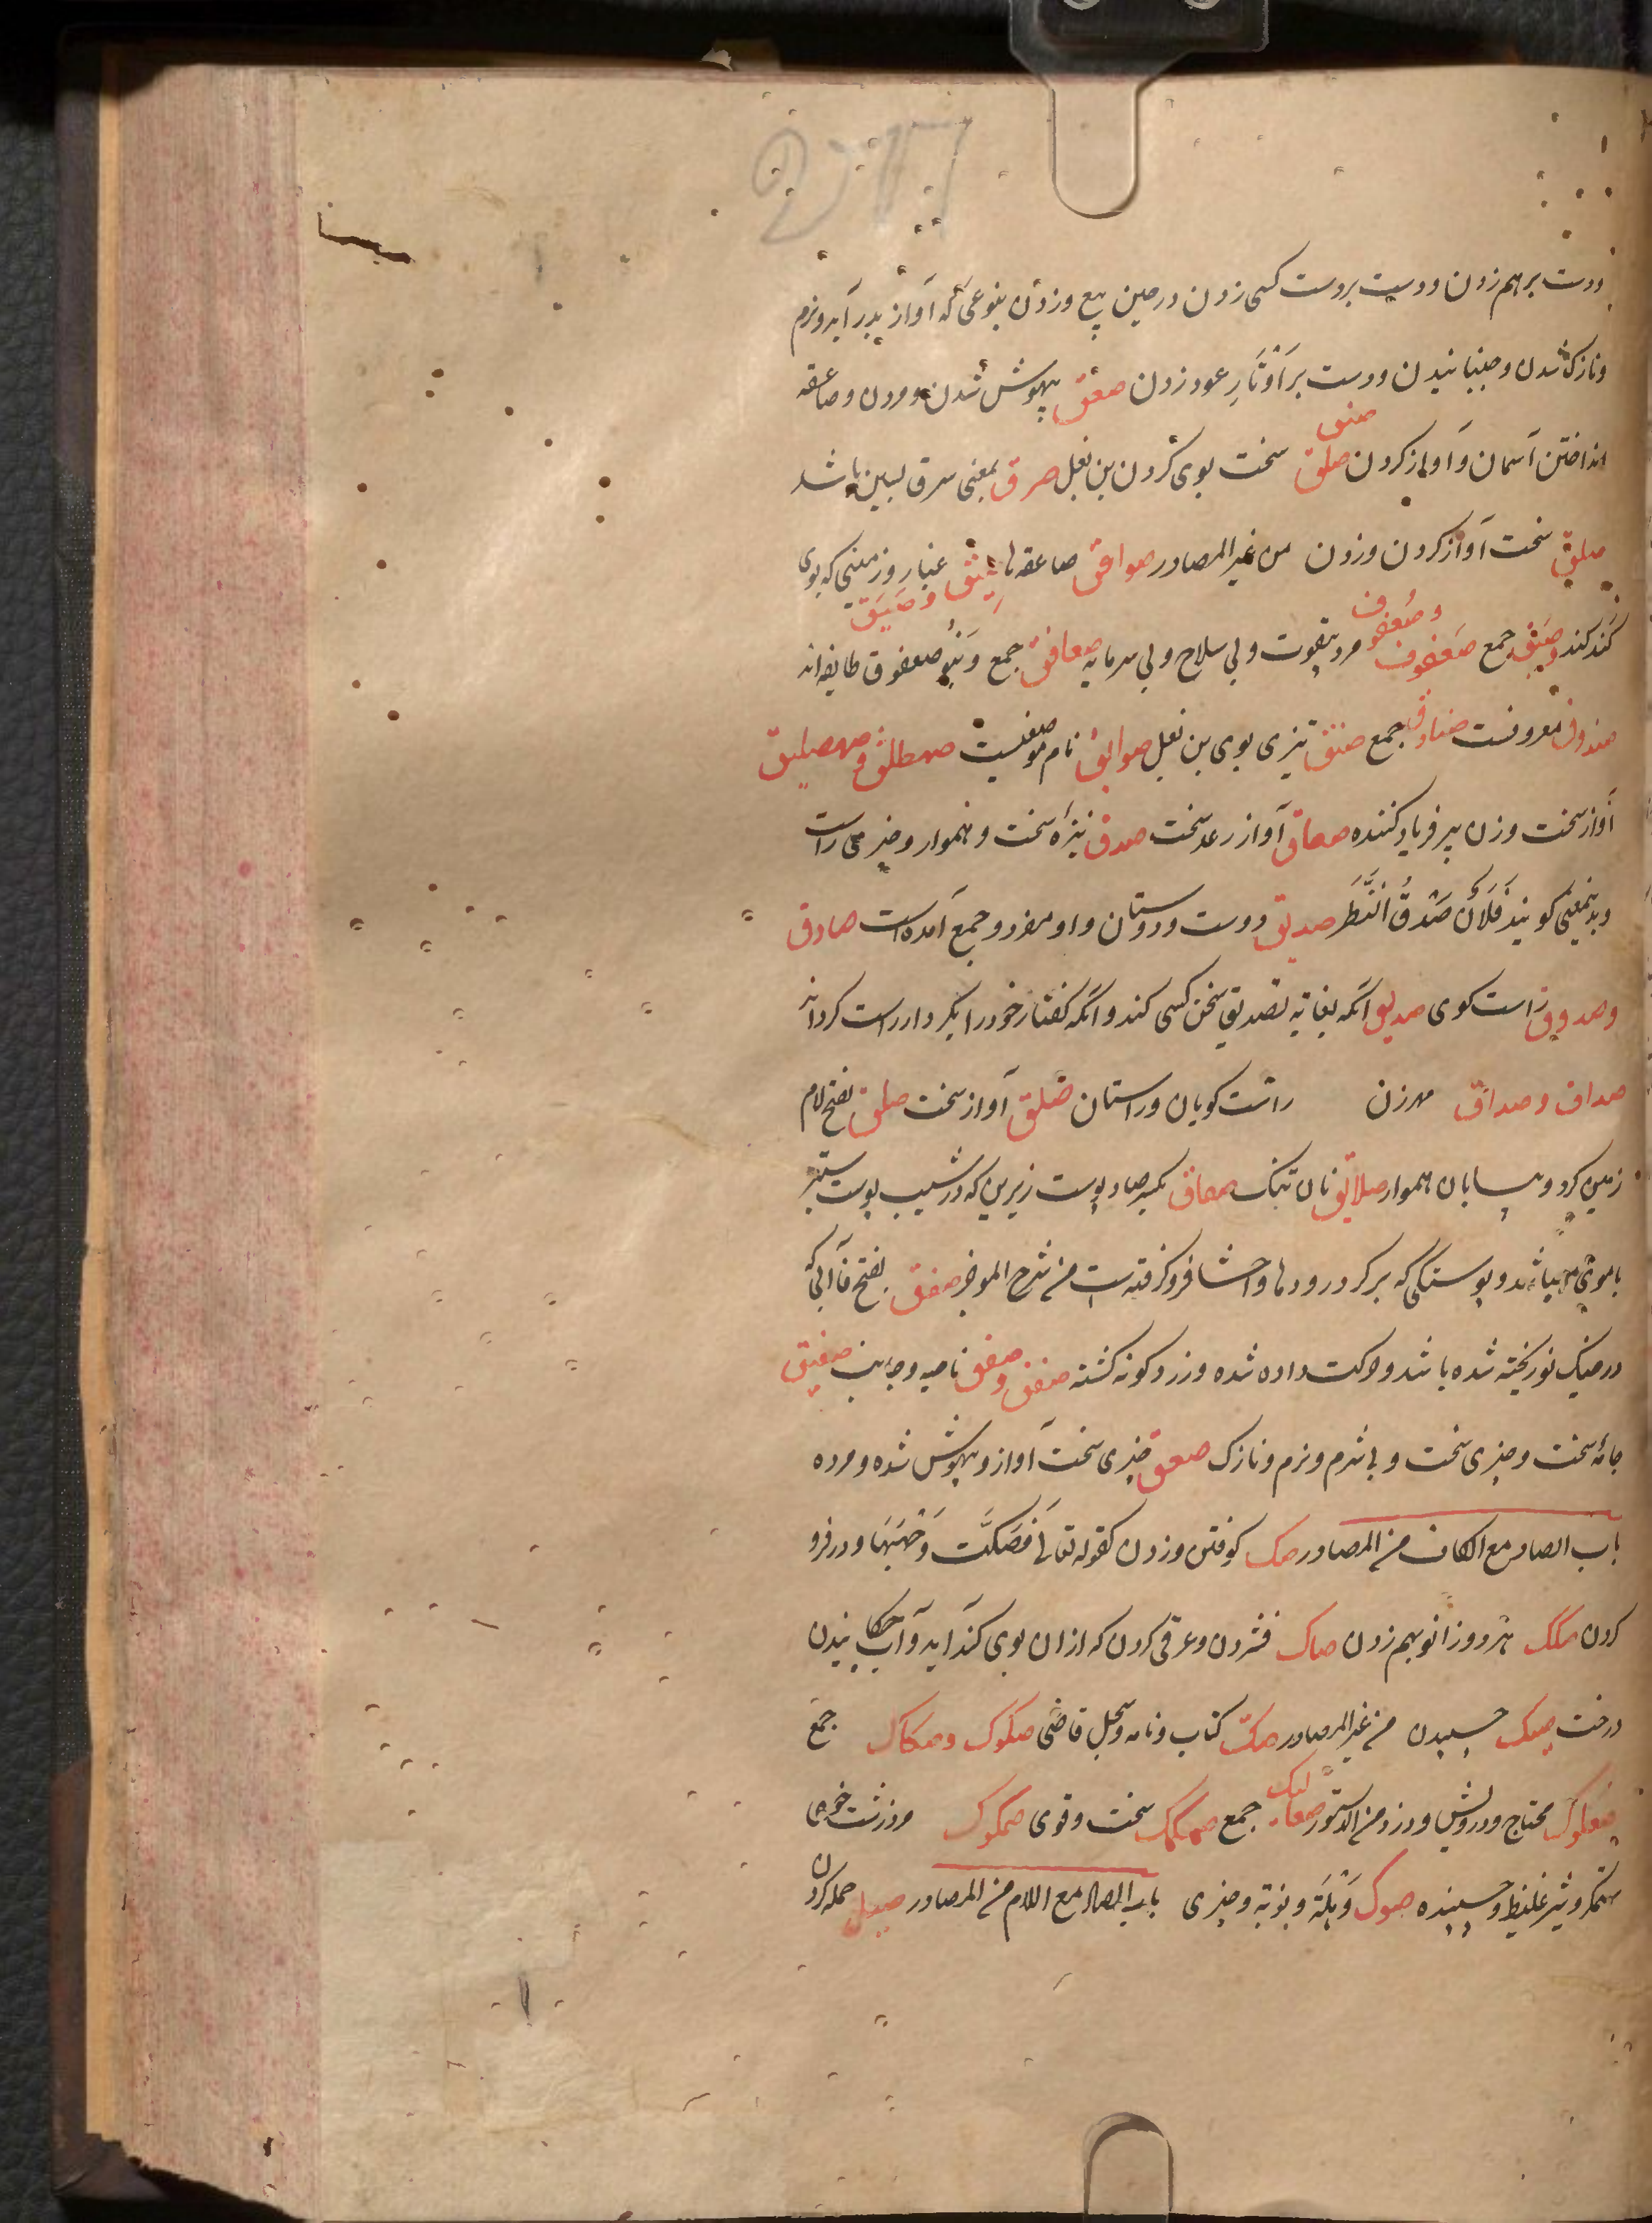 ودست برهم زدن ودست بردست کسی زدن درحین بیع وزدن بنوعی که آواز بدر آید ونرم
ونازک شدن وجنبانیدن ودست بر اَوْتَارِ عود زدن صعق بیهوش شدن ومردن وصاعقه
انداختن آسمان وآواز کردن صلق سخت بوی کردن بن بغل صرق بمعنی سرق بسین باشد
صلق سخت آواز کردن وزدن من غیر المصادر صواقق صاعقه‌ها صِیْق غبار وزمینی که بوی
گند کند وصیق جمع صَعْفُوق وصُعفوق مرد بیقوت وبی سلاح وبی سرمایه صعافق جمع وبَنُو صعفوق طایفه‌اند
صندوق معروفست صنادیق جمع صنق تیزی بوی بن بغل صوایق نام موضعیست صهصلق وصهصلیق
آواز سخت وزن پیر فریاد کننده صعاق آواز رعد سخت صدق نیزهٔ سخت وهموار وچیزی راست
وبدینمعنی گویند فُلَانٌ صَدْقُ النَّظَر صدیق دوست ودوستان واو مفرد وجمع آمده است صادق
وصدوق راست گوی صدیق آنکه بغایه تصدیق سخن کسی کند وآنکه گفتار خود را بکردار راست گرداند
صداق وصداق مهر زن راست گویان وراستان صلق آواز سخت صلق بفتح لام
زمین گرد وبیابان هموار صلایق نان تنک صفاق بکسر صاد پوست زیرین که در شیب پوست ستبر
با موی میباشد وپوستکی که بر گرد رودها واحشا فرو گرفته است من شرح الموجز صفق بفتح فا آبی که
در خیک نو ریخته شده باشد وحرکت داده شده وزرد گونه گشته صفق وصفق ناحیه وجانب صفیق
جامهٔ سخت وچیزی سخت وبی شرم ونرم ونازک صعق چیزی سخت آواز وبیهوش شده ومرده
باب الصاد مع الکاف من المصادر صک کوفتن وزدن کقوله تعالی فَصَکَّتْ وَجْهَهَا ودر فرو
کردن صکک هر دو زانو بهم زدن صاک فشردن وعرقی کردن که ازان بوی گند آید وآب چکانیدن
درخت صیک چسپیدن من غیر المصادر صکّ کتاب ونامه وسجل قاضی صکوک وصکاک جمع
صعلوک محتاج ودرویش ودزد من الدستور صعالیک جمع صمکمک سخت وقوی صمکوک مرد زشت خوی
ستمگر وشیر غلیظ وچسپنده صوک وَهْلَة ونوبة وچیزی باب الصاد مع اللام من المصادر صیل حمله کردن